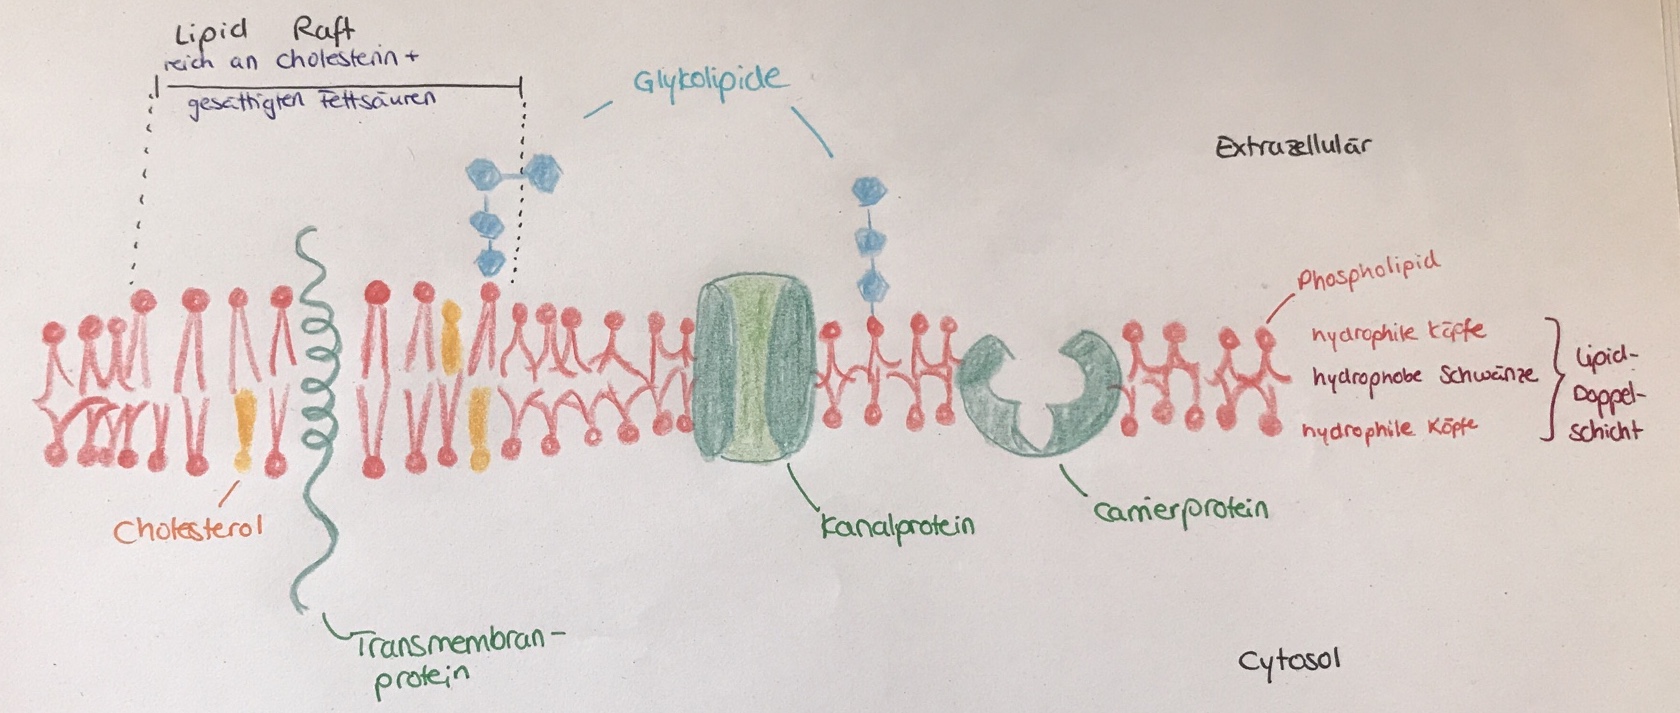 Lipid Raft
reich an Cholesterin +
gesättigten Fettsäuren
Glykolipide
Extrazellulär
Phospholipid
hydrophile Köpfe
hydrophobe Schwänze
hydrophile Köpfe
Lipid-
Doppel-
schicht
Cholesterol
Kanalprotein
Carrierprotein
Transmembran-
protein
Cytosol